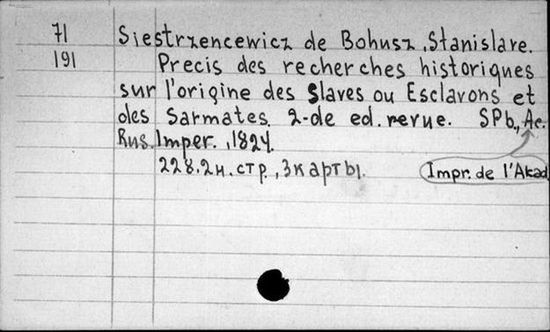 71
191
Siestrzencewicz de Bohusz, Stanislare.
Precis des recherches historiques
sur l'origine des Slaves ou Esclavons et
des Sarmates. 2-de ed. revue. SPb., Ac.
Rus. Imper., 1824.
228.2н.стр, 3карты.
Impr. de l'Akad